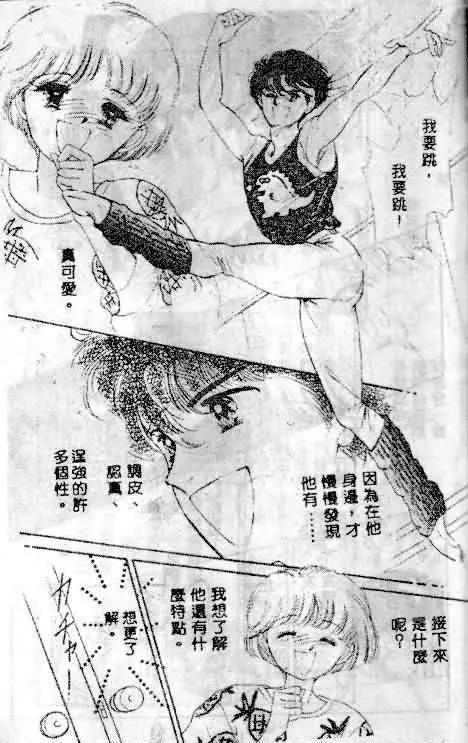 我要跳，
我要跳！
真可愛。
因為在他
身邊，才
慢慢發現
他有……
調皮、
認真、
倔強的許
多個性。
接下來
是什麼
呢？
我想了解
他還有什
麼特點。
想更了
解。
ガチャー